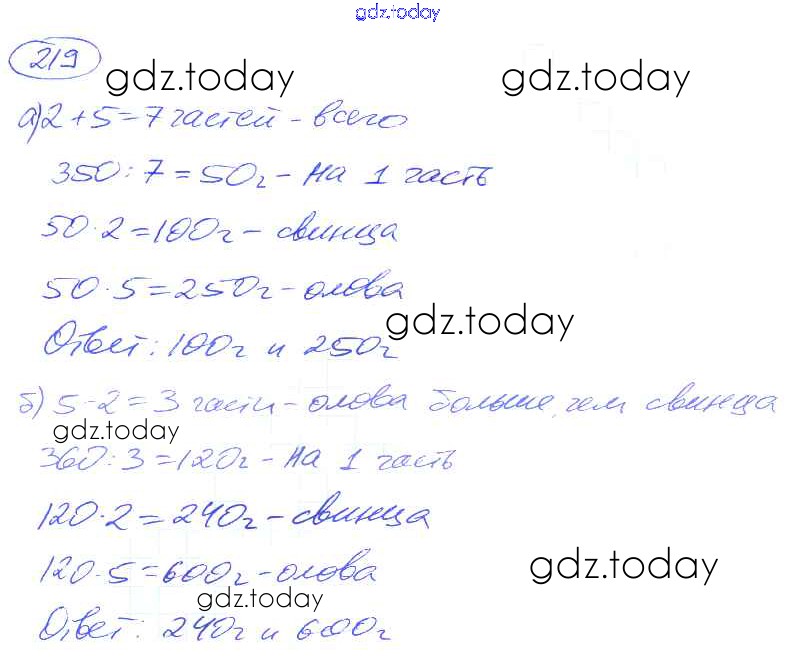 gdz.today
219
gdz.today gdz.today
а) 2 + 5 = 7 частей - всего
350 : 7 = 50г - на 1 часть
50 · 2 = 100г - свинца
50 · 5 = 250г - олова
gdz.today
Ответ: 100г и 250г
б) 5 - 2 = 3 части - олова больше, чем свинца
gdz.today
360 : 3 = 120г - на 1 часть
120 · 2 = 240г - свинца
120 · 5 = 600г - олова
gdz.today
gdz.today
Ответ: 240г и 600г